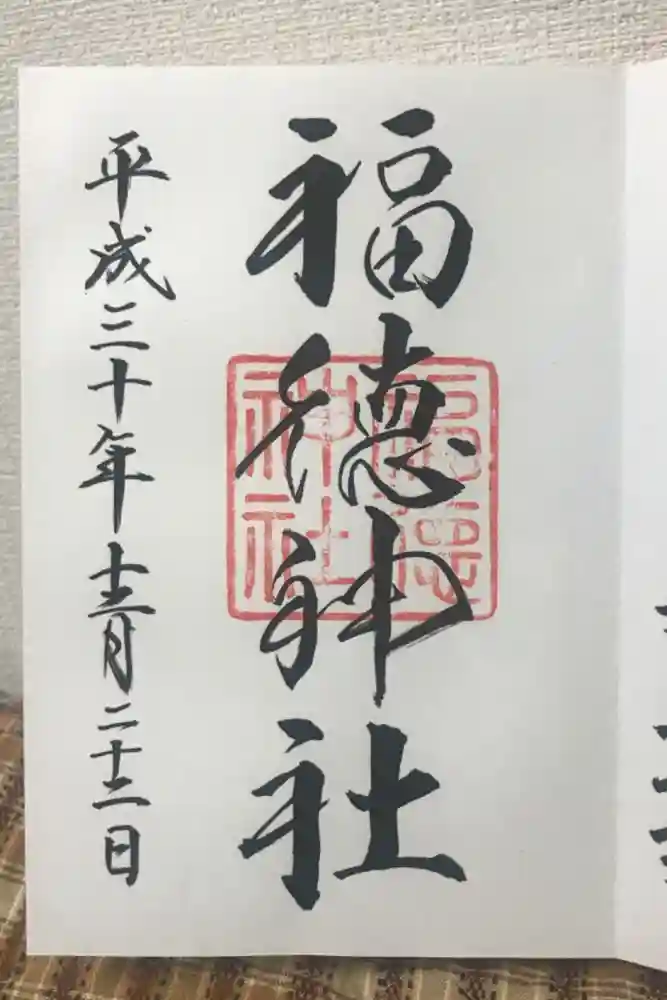 福徳神社
福徳
神社
平成三十年十二月二十二日